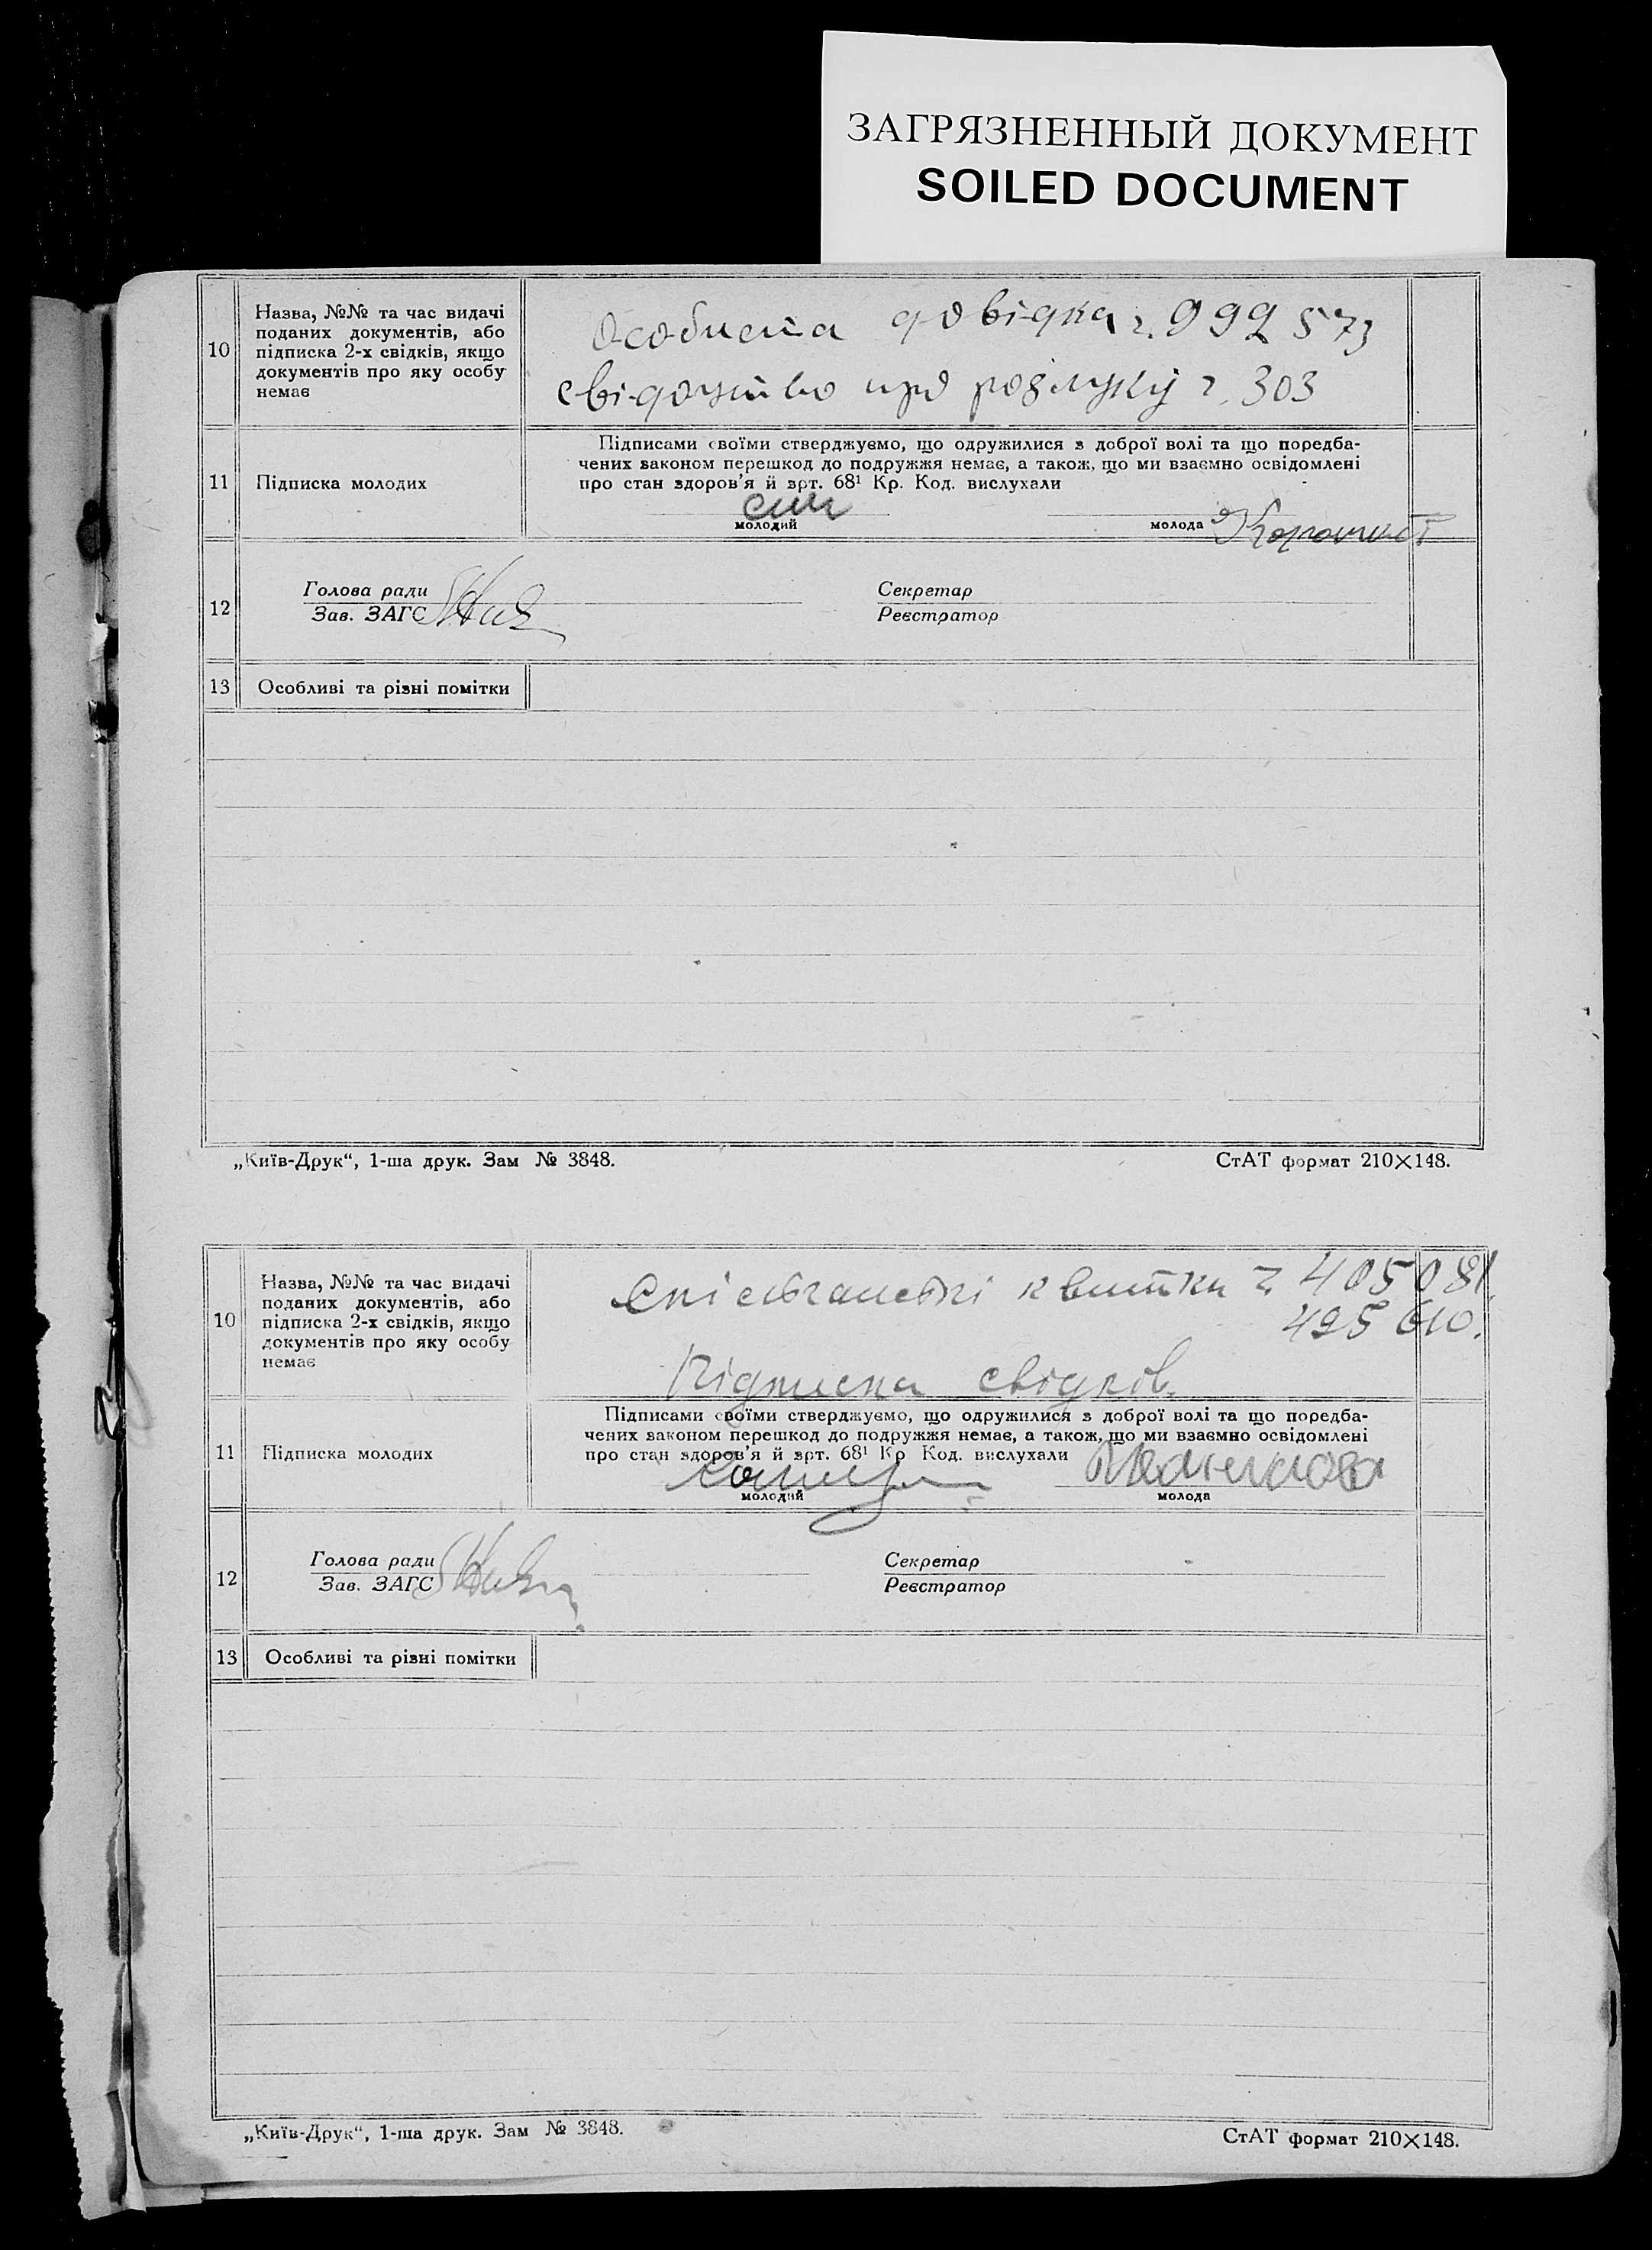 ЗАГРЯЗНЕННЫЙ ДОКУМЕНТ
SOILED DOCUMENT
10
Назва, №№ та час видачі
поданих документів, або
підписка 2-х свідків, якщо
документів про яку особу
немає
Особиста довідка ч. 992573
свідоцтво про розлуку ч. 303
11
Підписка молодих
Підписами своїми стверджуємо, що одружилися з доброї волі та що поредба-
чених законом перешкод до подружжя немає, а також, що ми взаємно освідомлені
про стан здоров'я й арт. 68¹ Кр. Код. вислухали
молодий
молода
12
Голова ради
Зав. ЗАГС
Секретар
Реєстратор
13
Особливі та різні помітки
„Київ-Друк“, 1-ша друк. Зам № 3848.
СтАТ формат 210×148.
10
Назва, №№ та час видачі
поданих документів, або
підписка 2-х свідків, якщо
документів про яку особу
немає
квитки ч. 405081.
495610.
Підписка свідків.
11
Підписка молодих
Підписами своїми стверджуємо, що одружилися з доброї волі та що поредба-
чених законом перешкод до подружжя немає, а також, що ми взаємно освідомлені
про стан здоров'я й арт. 68¹ Кр Код. вислухали
молодий
молода
12
Голова ради
Зав. ЗАГС
Секретар
Реєстратор
13
Особливі та різні помітки
„Київ-Друк“, 1-ша друк. Зам № 3848.
СтАТ формат 210×148.